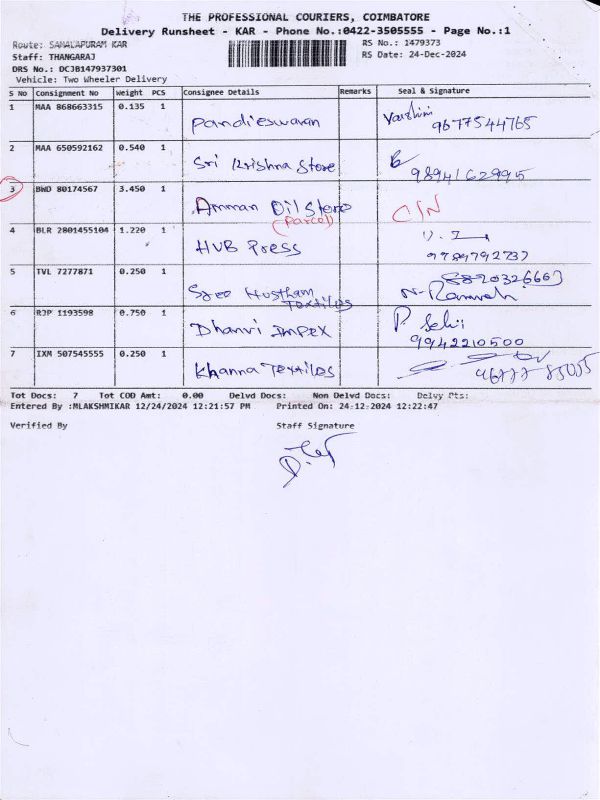 THE PROFESSIONAL COURIERS, COIMBATORE
Delivery Runsheet - KAR - Phone No.:0422-3505555 - Page No.:1
Route: SAMALAPURAM KAR
RS No.: 1479373
Staff: THANGARAJ
RS Date: 24-Dec-2024
DRS No.: DCJB147937301
Vehicle: Two Wheeler Delivery
S No Consignment No Weight PCS Consignee Details Remarks Seal & Signature
1 MAA 868663315 0.135 1 Pandieswaran Varshini
9677544765
2 MAA 650592162 0.540 1 Sri Krishna Store
9894162995
3 BWD 80174567 3.450 1 Amman Oil Store C/N
(Parcel)
4 BLR 2801455104 1.220 1 HUB Press
9789792737
5 TVL 7277871 0.250 1 Sree Hustham
Textiles
6 RJP 1193598 0.750 1 Dhanvi Impex P. Selvi
9942210500
7 IXM 507545555 0.250 1 Khanna Textiles
Tot Docs: 7 Tot COD Amt: 0.00 Delvd Docs: Non Delvd Docs: Delvy Pts:
Entered By :MLAKSHMIKAR 12/24/2024 12:21:57 PM Printed On: 24-12-2024 12:22:47
Verified By Staff Signature